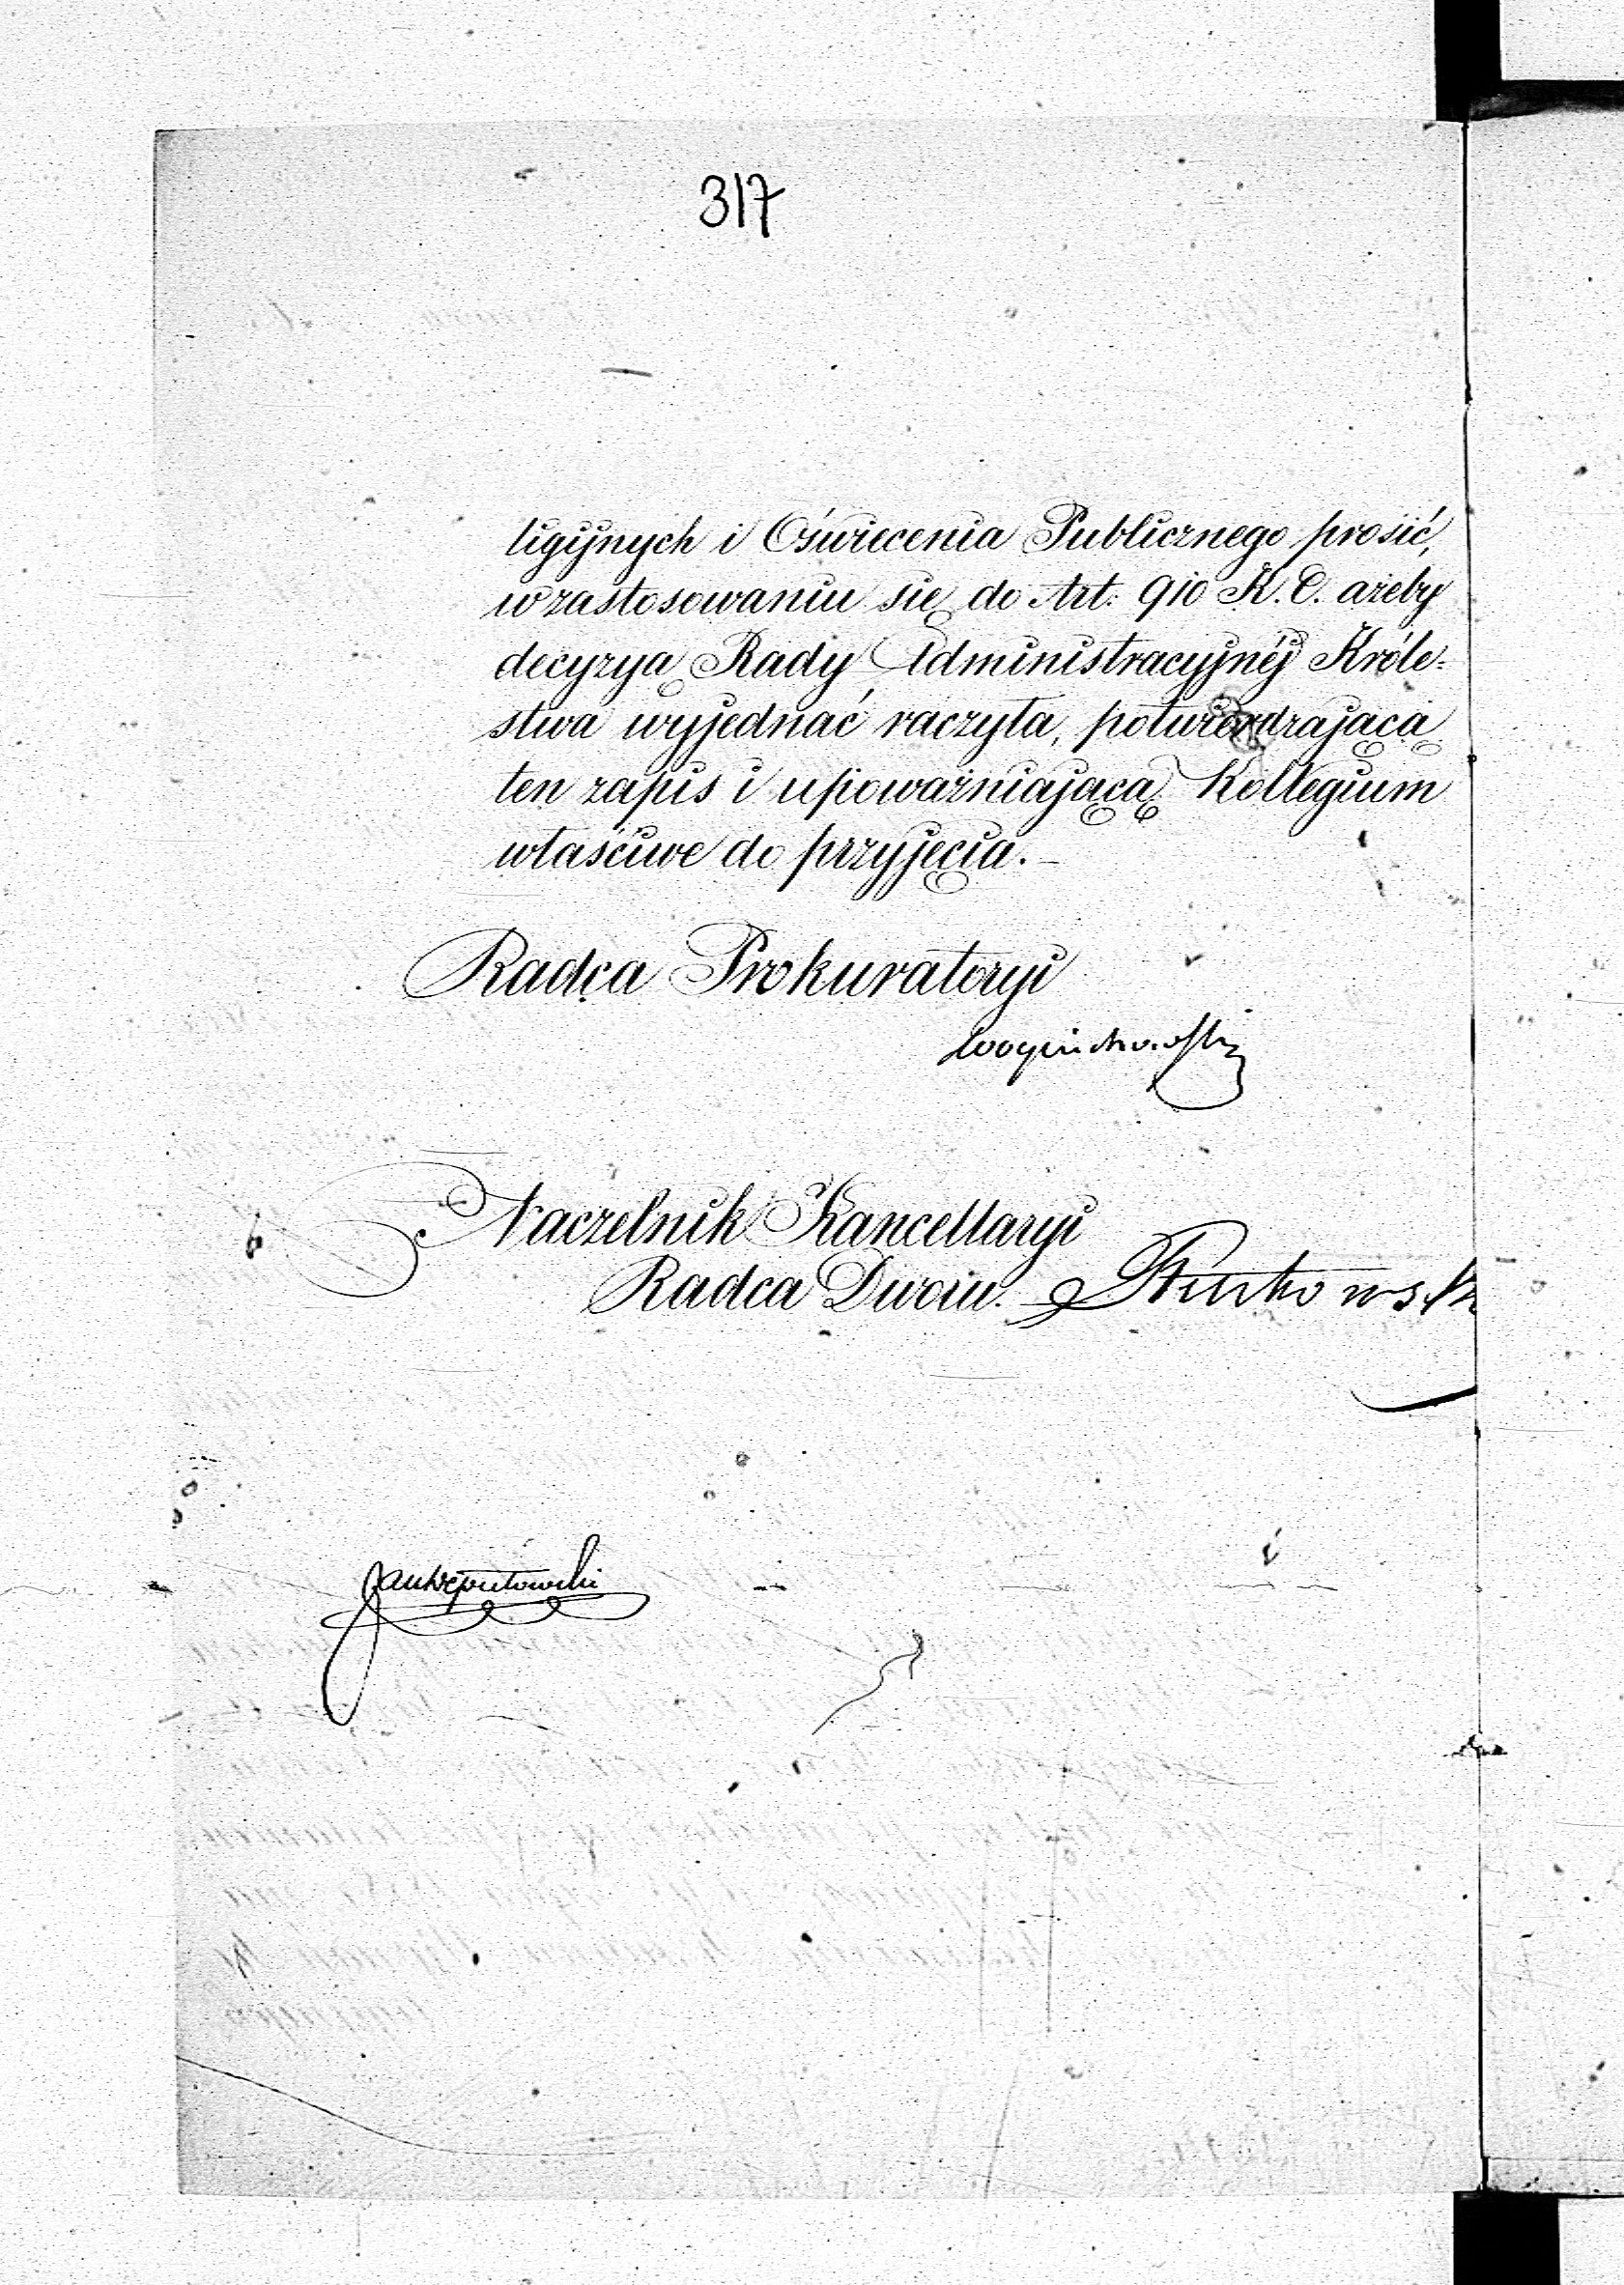 317
ligijnych i Oświecenia Publicznego prosić,
w zastosowaniu się do Art: 910 K. C. ażeby
decyzyą Rady Administracyjnéj Króle-
stwa wyjednać raczyła, potwierdzającą
ten zapis i upoważniającą Kollegium
właściwe do przyjęcia. –
Radca Prokuratoryi
Naczelnik Kancellaryi
Radca Dworu.